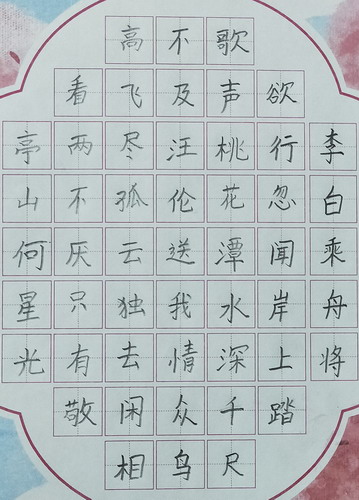 李白乘舟将
欲行忽闻岸上踏
歌声桃花潭水深千尺
不及汪伦送我情众鸟
高飞尽孤云独去闲相
看两不厌只有敬
亭山何星光